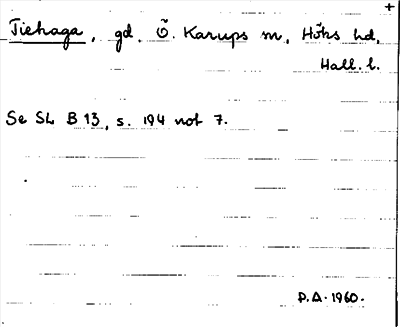 +
Tiehaga, gd, Ö. Karups sn, Höks hd,
Hall. l.
Se SL B 13, s. 194 not 7.
P.A. 1960.